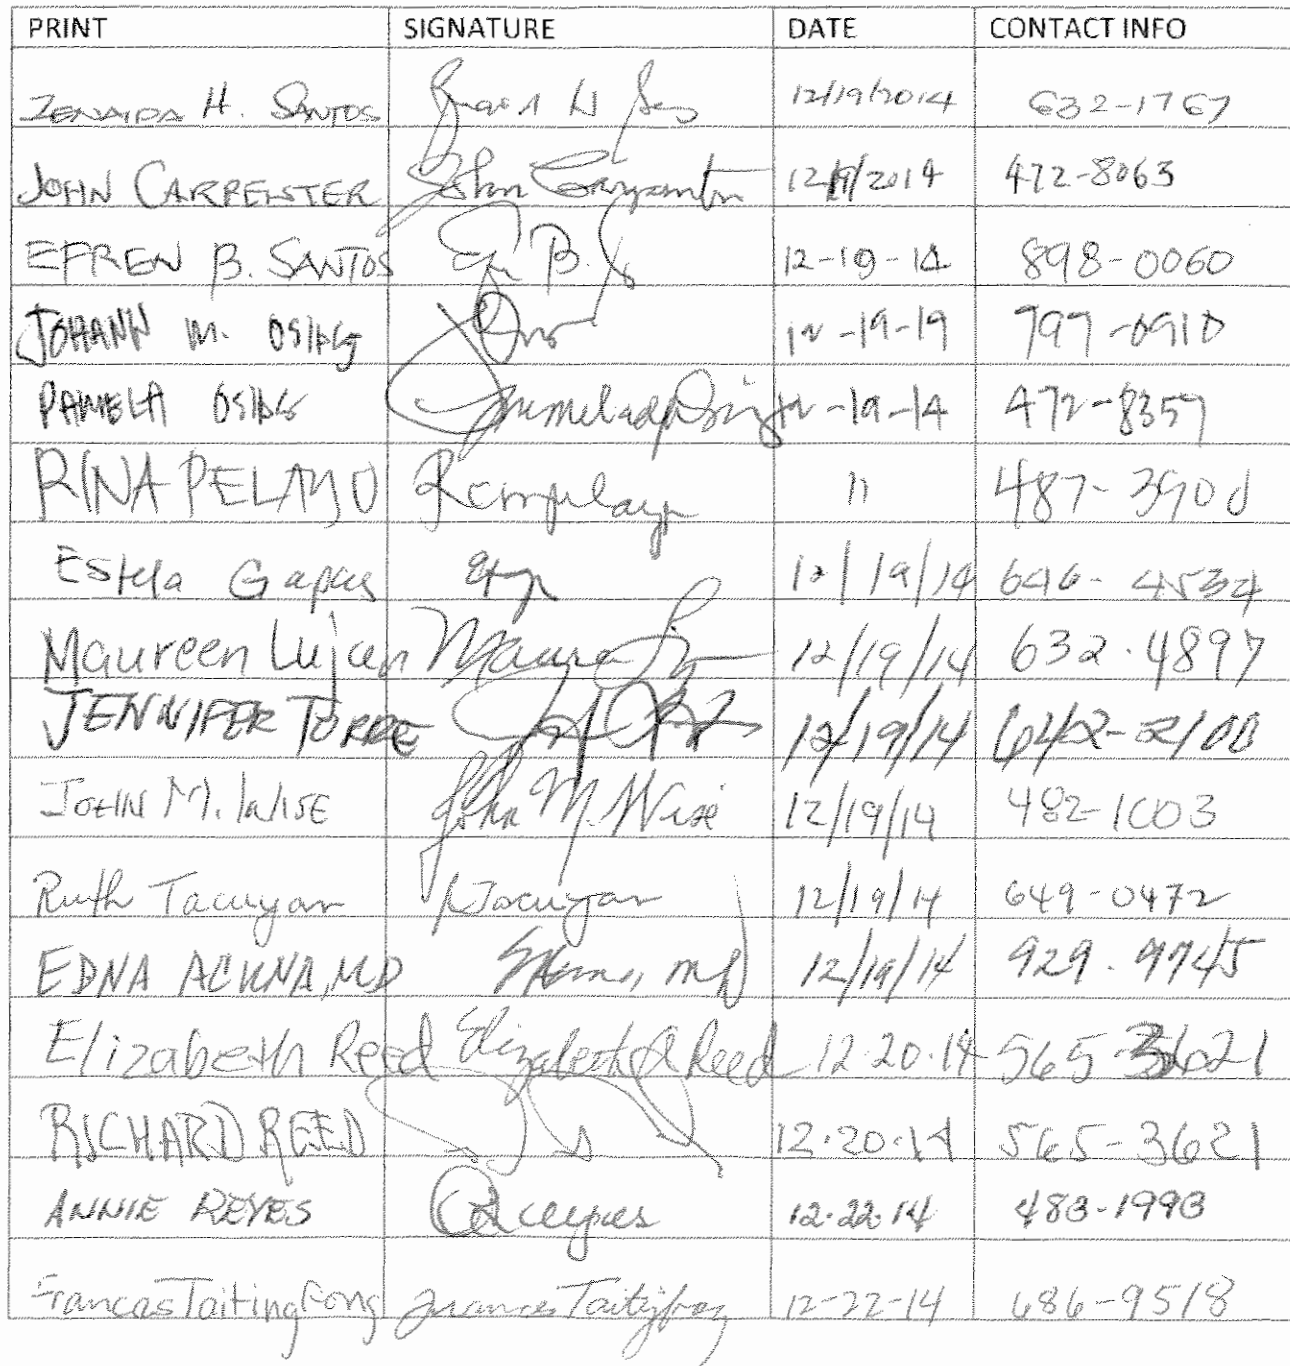 PRINT SIGNATURE DATE CONTACT INFO
ZENAIDA H. SANTOS 12/19/2014 632-1767
JOHN CARPENTER John Carpenter 12/19/2014 472-8063
EFREN B. SANTOS B. 12-19-14 898-0060
JOHANN M. 12-19-19 797-0910
PAMELA 12-19-14 472-8357
RINA PELAYO 11 487-3900
Estela Gapas 12/19/14 646-4534
Maureen Lujan 12/19/14 632.4897
JENNIFER TORRE 12/19/14 642-2100
JOHN M. WISE John M. Wise 12/19/14 482-1003
Ruth Tacuyan RTacuyan 12/19/14 649-0472
EDNA ACUNA, MD MD 12/19/14 929.9745
Elizabeth Reed Elizabeth Reed 12.20.14 565-3621
RICHARD REED 12.20.14 565-3621
ANNIE REYES 12.22.14 483-1993
Frances Taitingfong Frances Taitingfong 12-22-14 686-9518